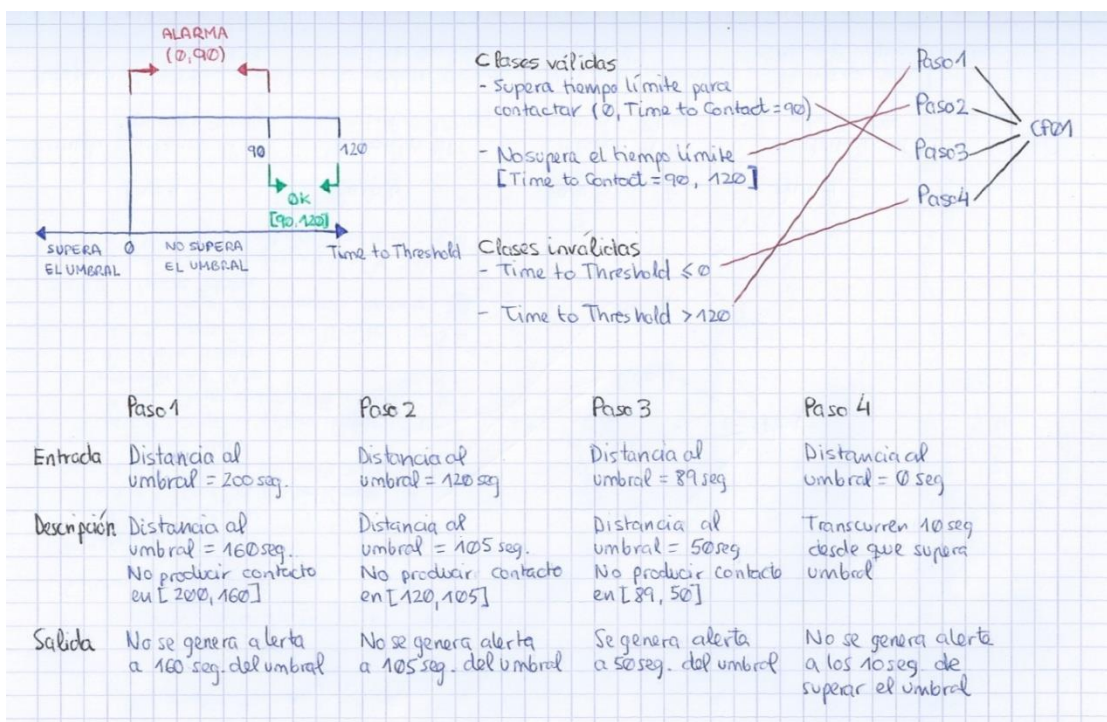 ALARMA
(0,90)
90
120
OK
[90,120]
SUPERA
EL UMBRAL
0
NO SUPERA
EL UMBRAL
Time to Threshold
Clases válidas
- Supera tiempo límite para
contactar (0, Time to Contact=90)
- No supera el tiempo límite
[Time to Contact=90, 120]
Clases inválidas
- Time to Threshold ≤0
- Time to Threshold >120
Paso1
Paso2
Paso3
Paso4
CF01
Paso1
Paso 2
Paso 3
Paso 4
Entrada
Distancia al
umbral = 200 seg.
Distancia al
umbral = 120 seg
Distancia al
umbral = 89 seg
Distancia al
umbral = 0 seg
Descripción
Distancia al
umbral = 160 seg.
No producir contacto
en [200, 160]
Distancia al
umbral = 105 seg.
No producir contacto
en [120, 105]
Distancia al
umbral = 50 seg
No producir contacto
en [89, 50]
Transcurren 10 seg
desde que supera
umbral
Salida
No se genera alerta
a 160 seg. del umbral
No se genera alerta
a 105 seg. del umbral
Se genera alerta
a 50 seg. del umbral
No se genera alerta
a los 10 seg. de
superar el umbral